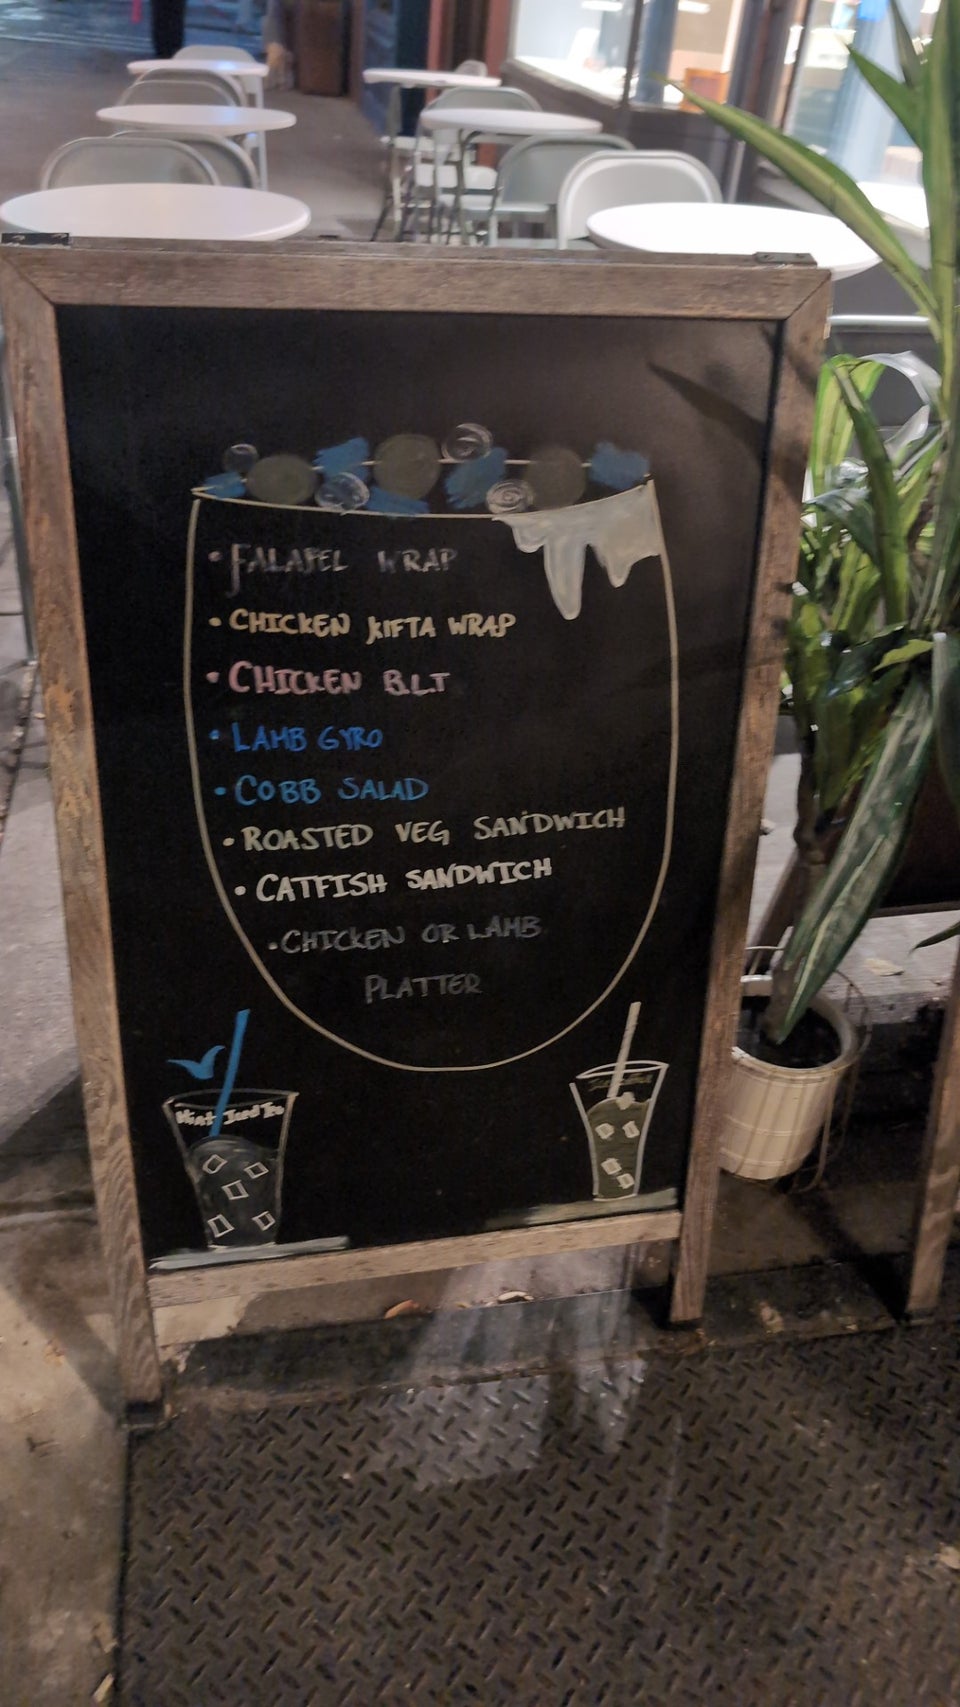 • FALAFEL WRAP
• CHICKEN KIFTA WRAP
• CHICKEN B.L.T
• LAMB GYRO
• COBB SALAD
• ROASTED VEG SANDWICH
• CATFISH SANDWICH
• CHICKEN OR LAMB
PLATTER
Mint Iced Tea